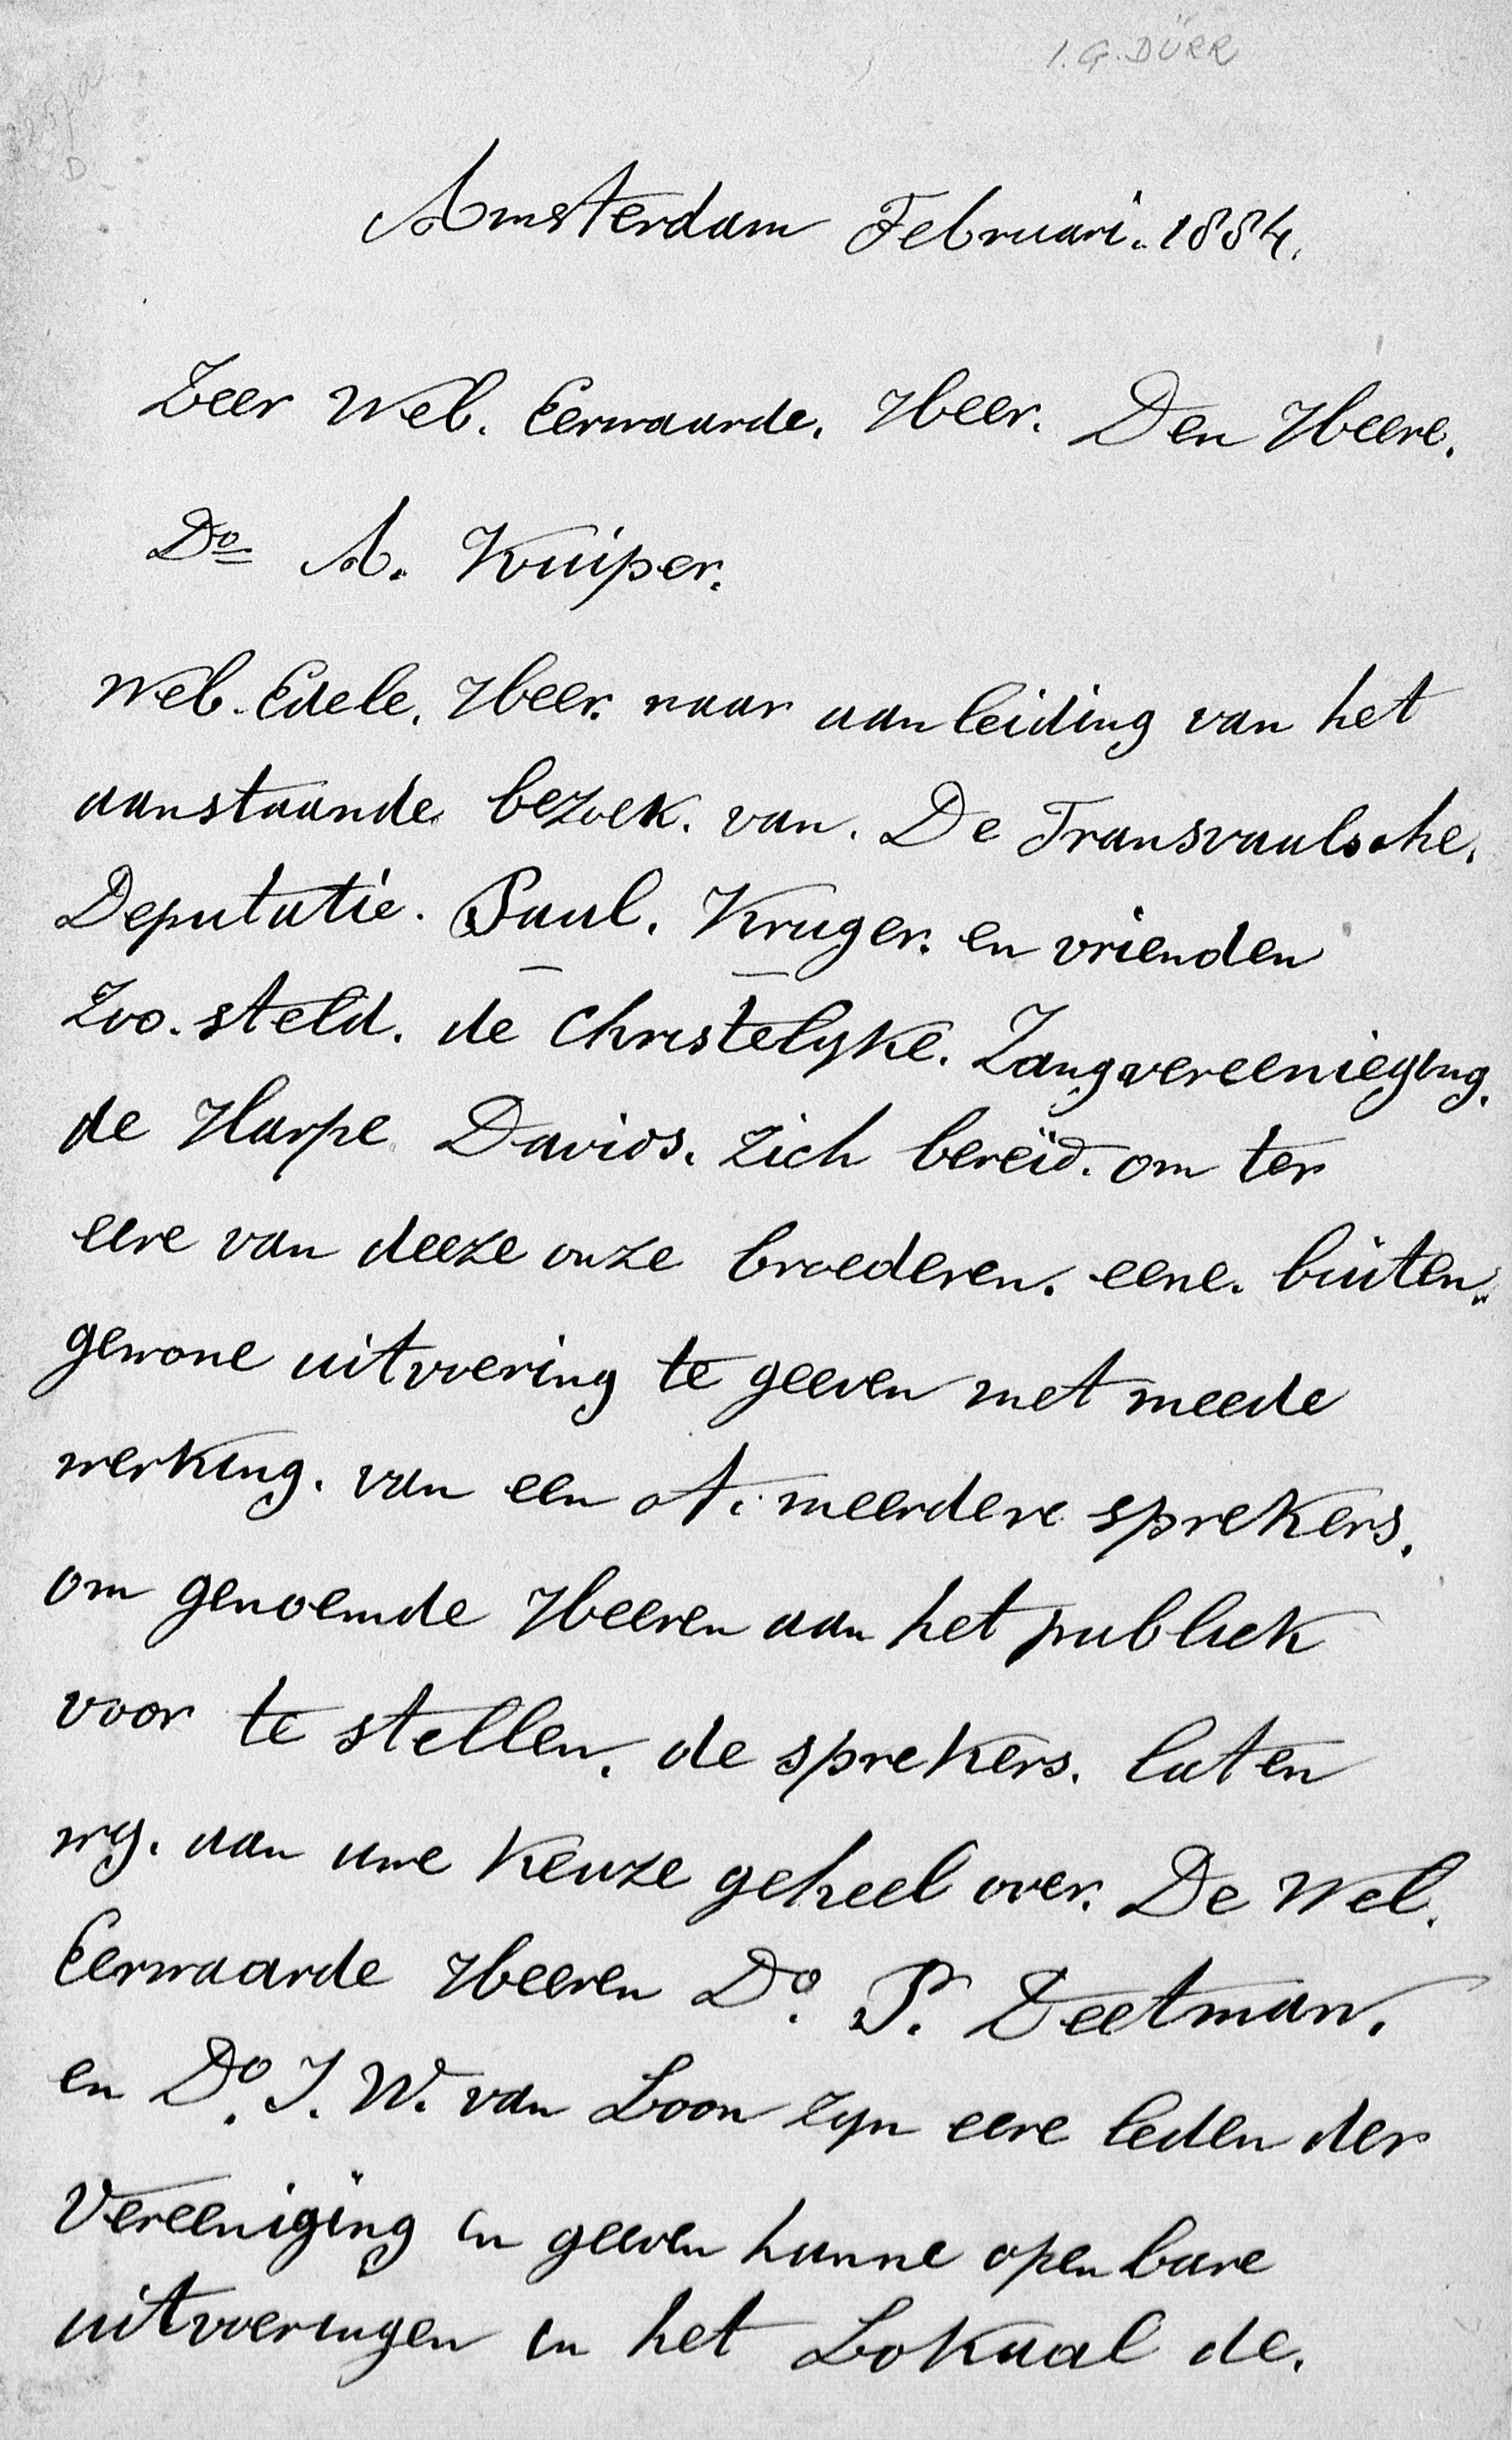 I. G. DÜRR
Amsterdam Februari. 1884.
Zeer Wel. Eerwaarde. Heer. Den Heere.
Do A. Kuiper.
Wel. Edele. Heer. naar aanleiding van het
aanstaande bezoek. van. De Transvaalsche.
Deputatie. Paul. Kruger. en vrienden
Zoo. steld. de Christelyke. Zangvereenieging.
de Harpe Davids. zich bereid. om ter
eere van deeze onze broederen. eene. buiten„
gewone uitvoering te geeven met meede
werking. van een of. meerdere sprekers.
om genoemde Heeren aan het publiek
voor te stellen. de sprekers. laten
wy. aan uwe keuze geheel over. De Wel.
Eerwaarde Heeren Do. P. Deetman.
en Do. J. W. van Loon zyn eere leden der
Vereeniging en geeven hunne openbare
uitvoeringen in het Lokaal de.